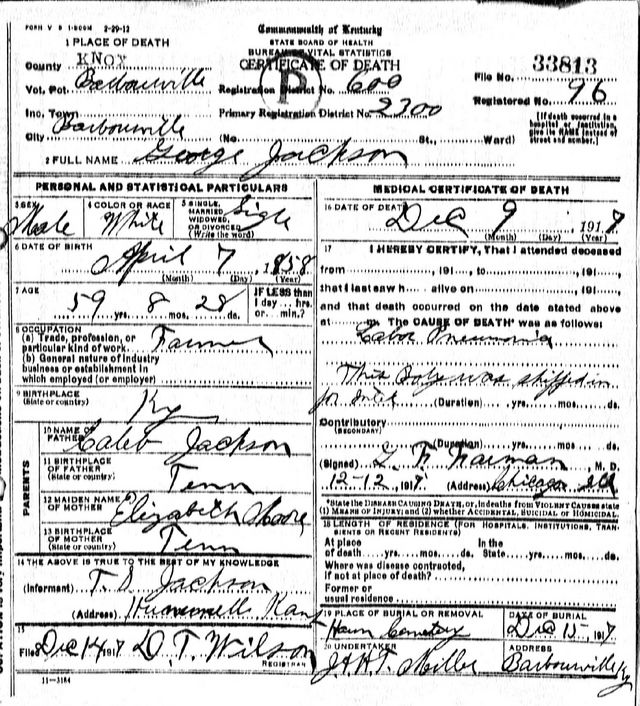 FORM V S 1-500M 2-29-12
Commonwealth of Kentucky
STATE BOARD OF HEALTH
BUREAU OF VITAL STATISTICS
CERTIFICATE OF DEATH
P
1 PLACE OF DEATH
County KNOX
Vot. Pct. Barbourville
Registration District No. 600
File No. 33813
Inc. Town
Primary Registration District No. 2300
Registered No. 96
City Barbourville (No. St., Ward)
[If death occurred in a hospital or institution, give its NAME instead of street and number.]
2 FULL NAME George Jackson
PERSONAL AND STATISTICAL PARTICULARS
3 SEX Male
4 COLOR OR RACE White
5 SINGLE, MARRIED, WIDOWED, OR DIVORCED (Write the word) Sigle
6 DATE OF BIRTH April 7, 1858
(Month) (Day) (Year)
7 AGE 59 yrs. 8 mos. 28 ds.
IF LESS than 1 day, hrs. or min.?
8 OCCUPATION
(a) Trade, profession, or particular kind of work Farmer
(b) General nature of industry business or establishment in which employed (or employer)
9 BIRTHPLACE (State or country) Ky
PARENTS
10 NAME OF FATHER Caleb Jackson
11 BIRTHPLACE OF FATHER (State or country) Tenn
12 MAIDEN NAME OF MOTHER Elizabeth Moore
13 BIRTHPLACE OF MOTHER (State or country) Tenn
14 THE ABOVE IS TRUE TO THE BEST OF MY KNOWLEDGE
(Informant) T. D. Jackson
(Address) Kans
15
Filed Dec 14 1917 D. T. Wilson
REGISTRAR
11—3184
MEDICAL CERTIFICATE OF DEATH
16 DATE OF DEATH Dec 9, 1917
(Month) (Day) (Year)
17 I HEREBY CERTIFY, That I attended deceased
from , 191 , to , 191 ,
that I last saw h alive on , 191 ,
and that death occurred on the date stated above
at m. The CAUSE OF DEATH* was as follows:
Labor Pneumonia
This Body was shipped in
for
(Duration) yrs. mos. ds.
Contributory
(SECONDARY)
(Duration) yrs. mos. ds.
(Signed) , M. D.
12-12, 1917 (Address) Chicago Ill
*State the DISEASE CAUSING DEATH, or, in deaths from VIOLENT CAUSES state (1) MEANS OF INJURY; and (2) whether ACCIDENTAL, SUICIDAL or HOMICIDAL.
18 LENGTH OF RESIDENCE (FOR HOSPITALS, INSTITUTIONS, TRANSIENTS OR RECENT RESIDENTS)
At place of death yrs. mos. ds. In the State yrs. mos. ds.
Where was disease contracted, If not at place of death?
Former or usual residence
19 PLACE OF BURIAL OR REMOVAL Cemetery
DATE OF BURIAL Dec 15, 1917
20 UNDERTAKER Miller
ADDRESS Barbourville Ky